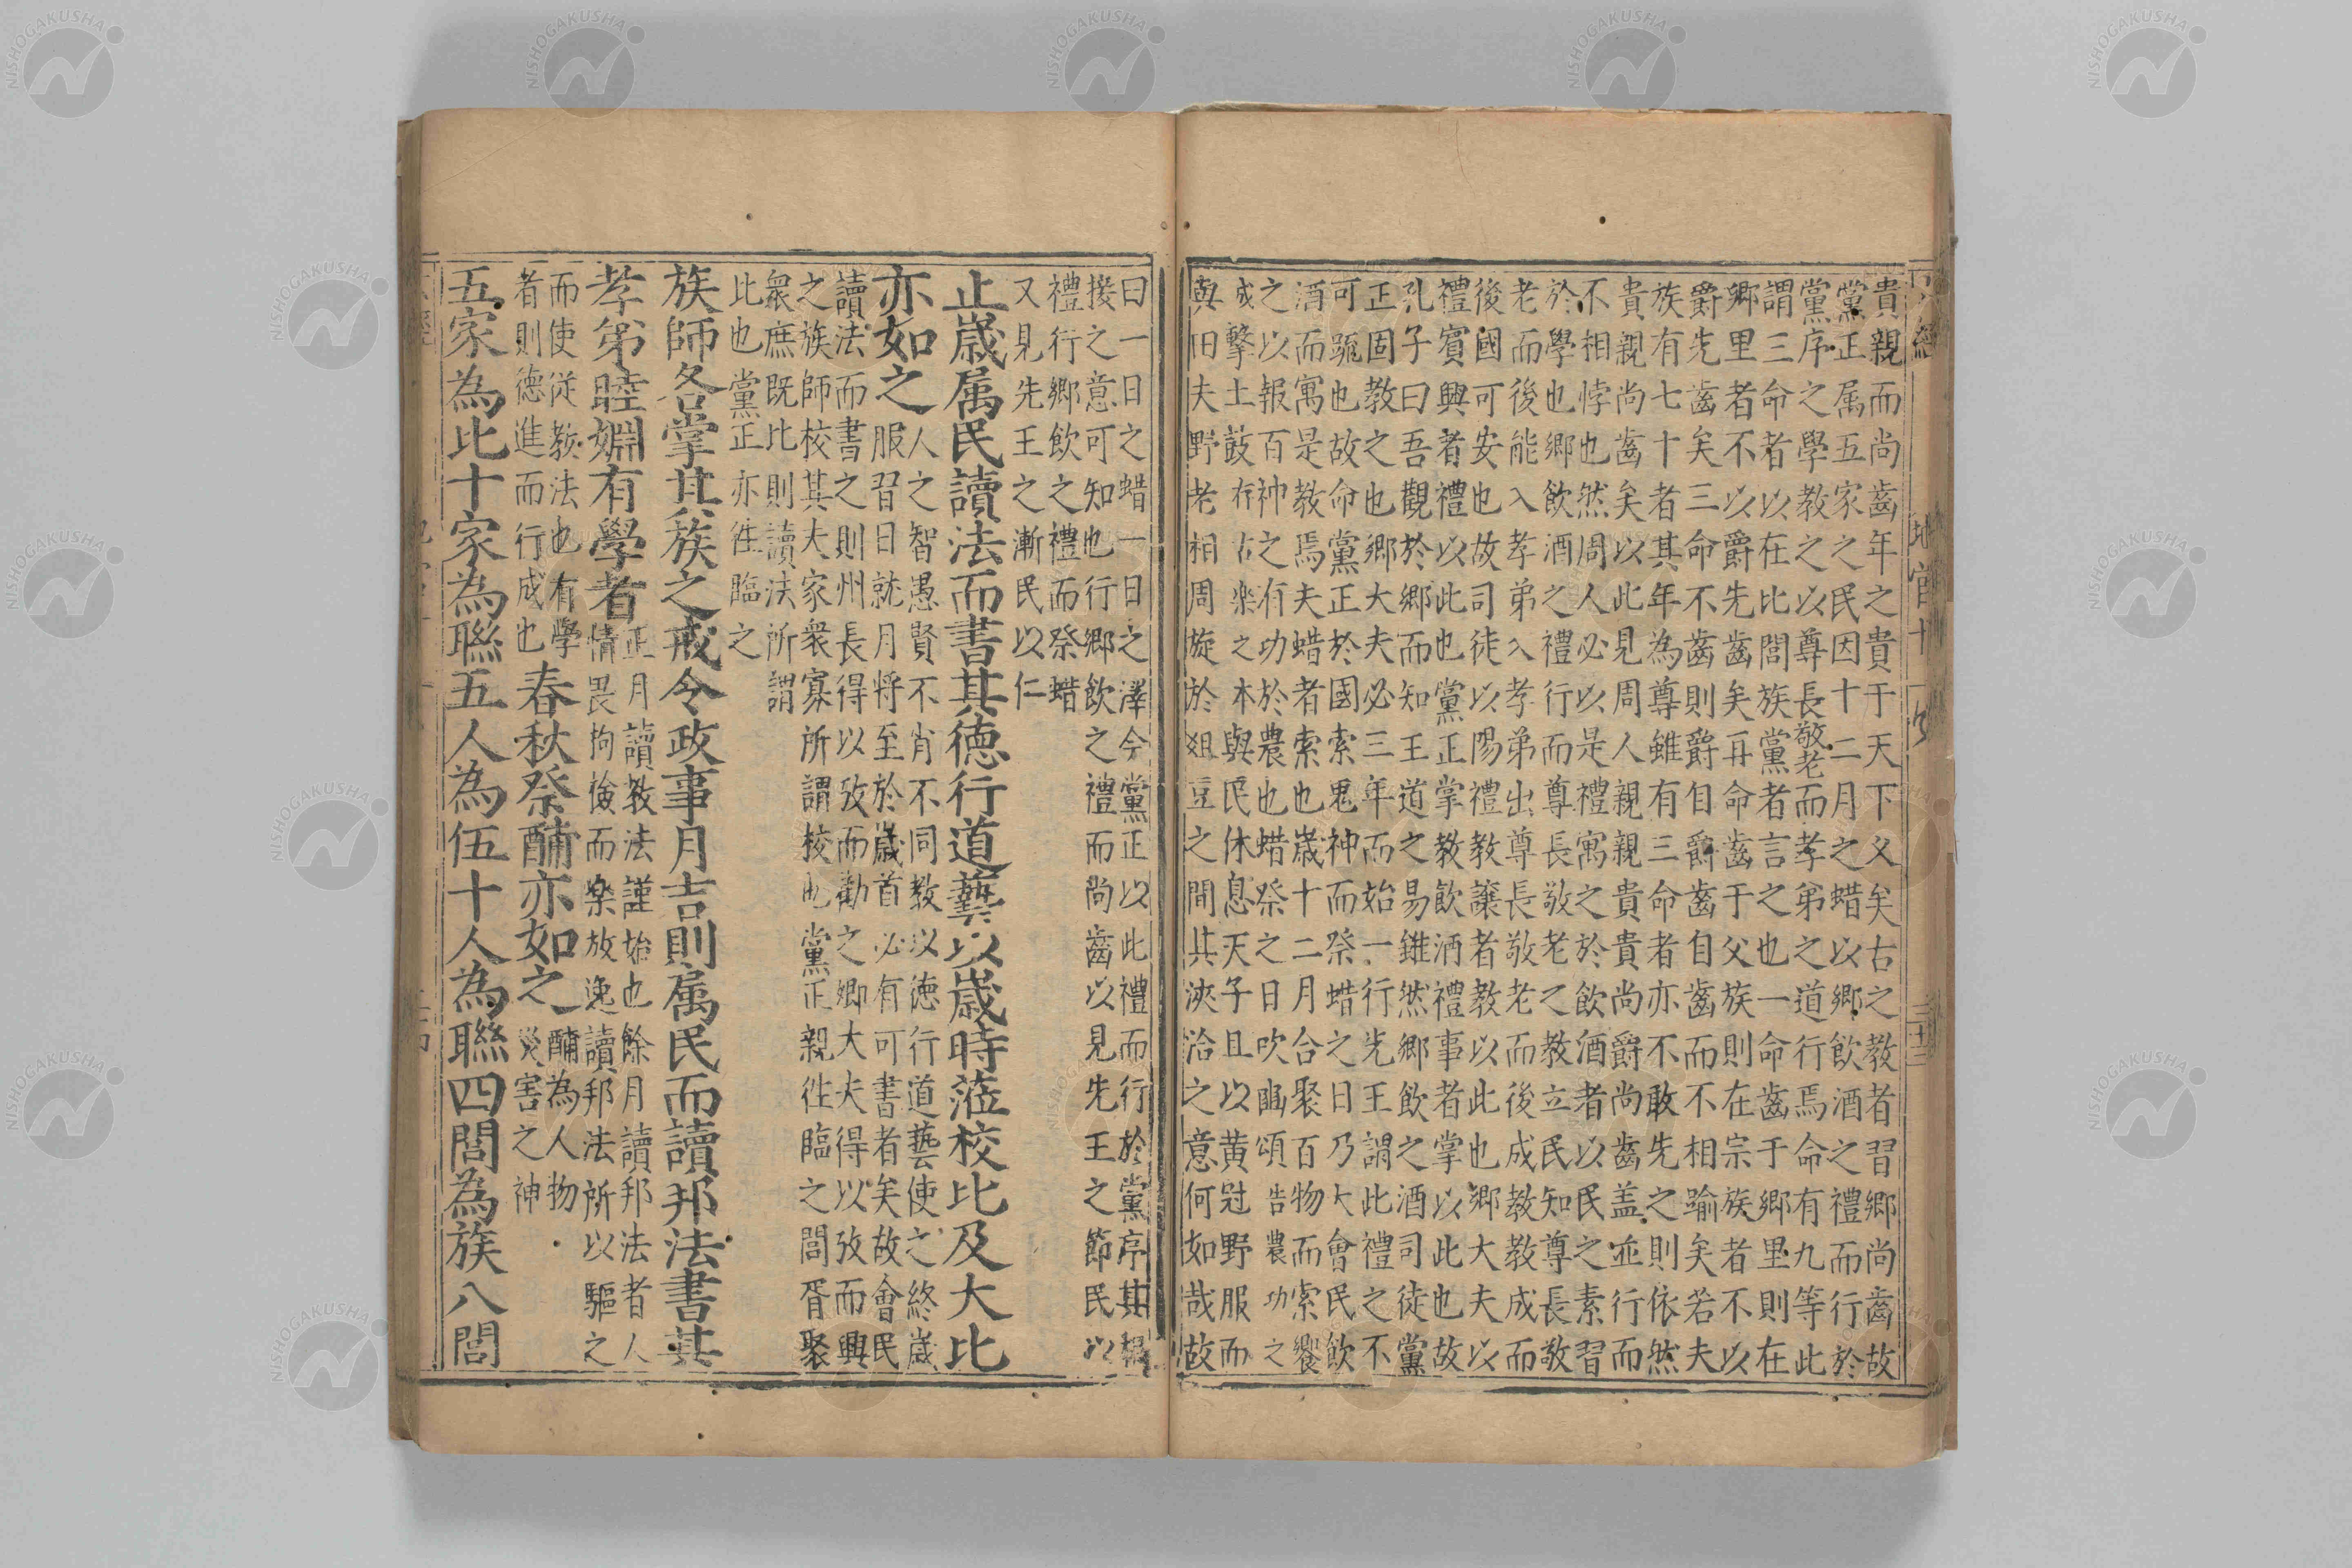 貴親而尚齒年之貴于天下父矣古之教者習鄉尚齒故
黨正属五家之民因十二月之蜡以鄉飲酒之禮而行於
黨序之學教之以尊長敬老而孝弟之道行焉命有九等此
謂三命者以在比閭族黨者言之也一命齒于鄉里則在
鄉里者不以爵先齒矣再命齒于父族則在宗族者不以
爵先齒矣三命不齒則爵自爵齒自齒而不相踰矣若夫
族有七十者其年為尊雖有三命者亦不敢先之則依然
貴親尚齒矣以此見周人親親貴貴尚爵尚齒盖並行而
不相悖也然周人必以是禮寓之於飲酒者以民之素習
於學也鄉飲酒之禮行而尊長敬老之教立民知尊長敬
老而後能入孝弟入孝弟出尊長敬老而後成教教成而
後國可安也故司徒以陽禮教讓者教以此也鄉大夫以
禮賓興者禮以此也黨正掌教飲酒禮事者掌以此也故
孔子曰吾觀於鄉而知王道之易雖然鄉飲之酒司徒黨
正固教之也鄉大夫必三年而始一行先王謂此禮之不
可踈也故命黨正於國索鬼神而祭蜡之日乃大會民飲
酒而寓是教焉夫蜡者索也歲十二月合聚百物而索饗
之以報百神之有功於農也蜡祭之日吹豳頌告農功之
成擊土鼓存古樂之本與民休息天子且以黄冠野服而
與田夫野老相周旋於俎豆之間其浹洽之意何如哉故
曰一日之蜡一日之澤今黨正以此禮而行於黨序其親
接之意可知也行鄉飲之禮而尚齒以見先王之節民以
禮行鄉飲之禮而祭蜡
又見先王之漸民以仁
正歲属民讀法而書其德行道藝以歲時涖校比及大比
亦如之人之智愚賢不肖不同教以德行道藝使之終歲
服習日就月将至於歲首必有可書者矣故會民
讀法而書之則州長得以攷而勸之鄉大夫得以攷而興
之族師校其大家衆寡所謂校也黨正親往臨之閭胥聚
衆庶既比則讀法所謂
比也黨正亦往臨之
族師各掌其族之戒令政事月吉則属民而讀邦法書其
孝弟睦婣有學者正月讀教法謹始也餘月讀邦法者人
情畏拘儉而樂放逸讀邦法所以驅之
而使従教法也有學
者則德進而行成也春秋祭酺亦如之酺為人物
災害之神
五家為比十家為聯五人為伍十人為聯四閭為族八閭